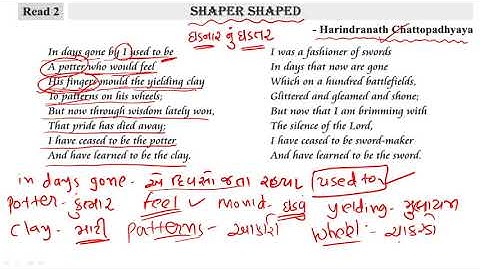 Read 2
SHAPER SHAPED
ઘડનાર નું ઘડતર
- Harindranath Chattopadhyaya
In days gone by I used to be
A potter who would feel
His fingers mould the yielding clay
To patterns on his wheels;
But now through wisdom lately won,
That pride has died away;
I have ceased to be the potter
And have learned to be the clay.
I was a fashioner of swords
In days that now are gone
Which on a hundred battlefields,
Glittered and gleamed and shone;
But now that I am brimming with
The silence of the Lord,
I have ceased to be sword-maker
And have learned to be the sword.
in days gone - એ દિવસો જતા રહ્યા used to
Potter - કુંભાર feel mould - ઘડવું yelding - મુલાયમ
Clay - માટી Patterns - આકારો wheel - ચાકડો